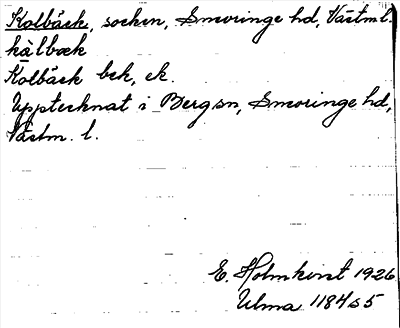 Kolbäck, socken, Snevringe hd, Västm l.
kålbæk
Kolbäck bck, ek.
Upptecknat i Berg sn, Snevringe hd,
Västm. l.
E. Holmkvist 1926
Ulma 1184 s 5